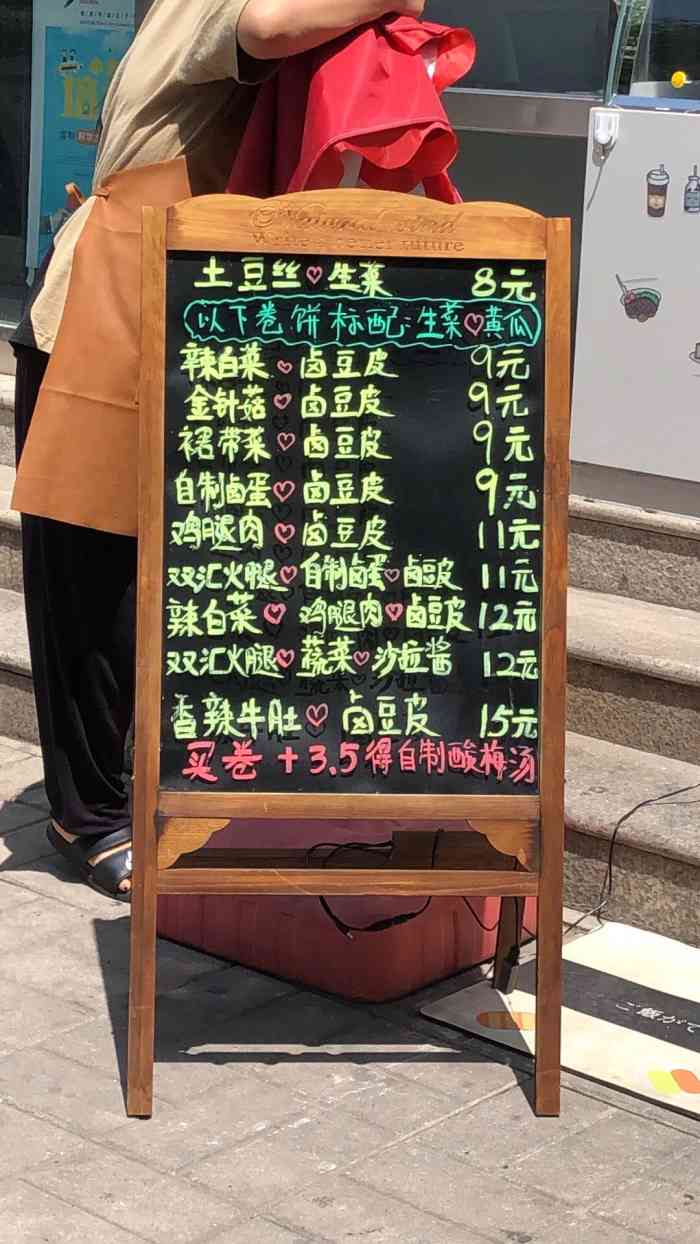 土豆丝♡生菜 8元
以下卷饼标配:生菜♡黄瓜
辣白菜♡卤豆皮 9元
金针菇♡卤豆皮 9元
裙带菜♡卤豆皮 9元
自制卤蛋♡卤豆皮 9元
鸡腿肉♡卤豆皮 11元
双汇火腿♡自制卤蛋♡卤豆皮 11元
辣白菜♡鸡腿肉♡卤豆皮 12元
双汇火腿♡蔬菜♡沙拉酱 12元
香辣牛肚♡卤豆皮 15元
买卷+3.5得自制酸梅汤
ご飯がで